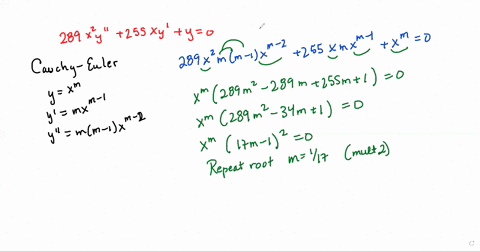 289 x²y'' + 255 xy' + y = 0
Cauchy-Euler
y = x^m
y' = mx^(m-1)
y'' = m(m-1)x^(m-2)
289 x² m(m-1)x^(m-2) + 255 x m x^(m-1) + x^m = 0
x^m (289m² - 289m + 255m + 1) = 0
x^m (289m² - 34m + 1) = 0
x^m (17m-1)² = 0
Repeat root m = 1/17 (mult 2)